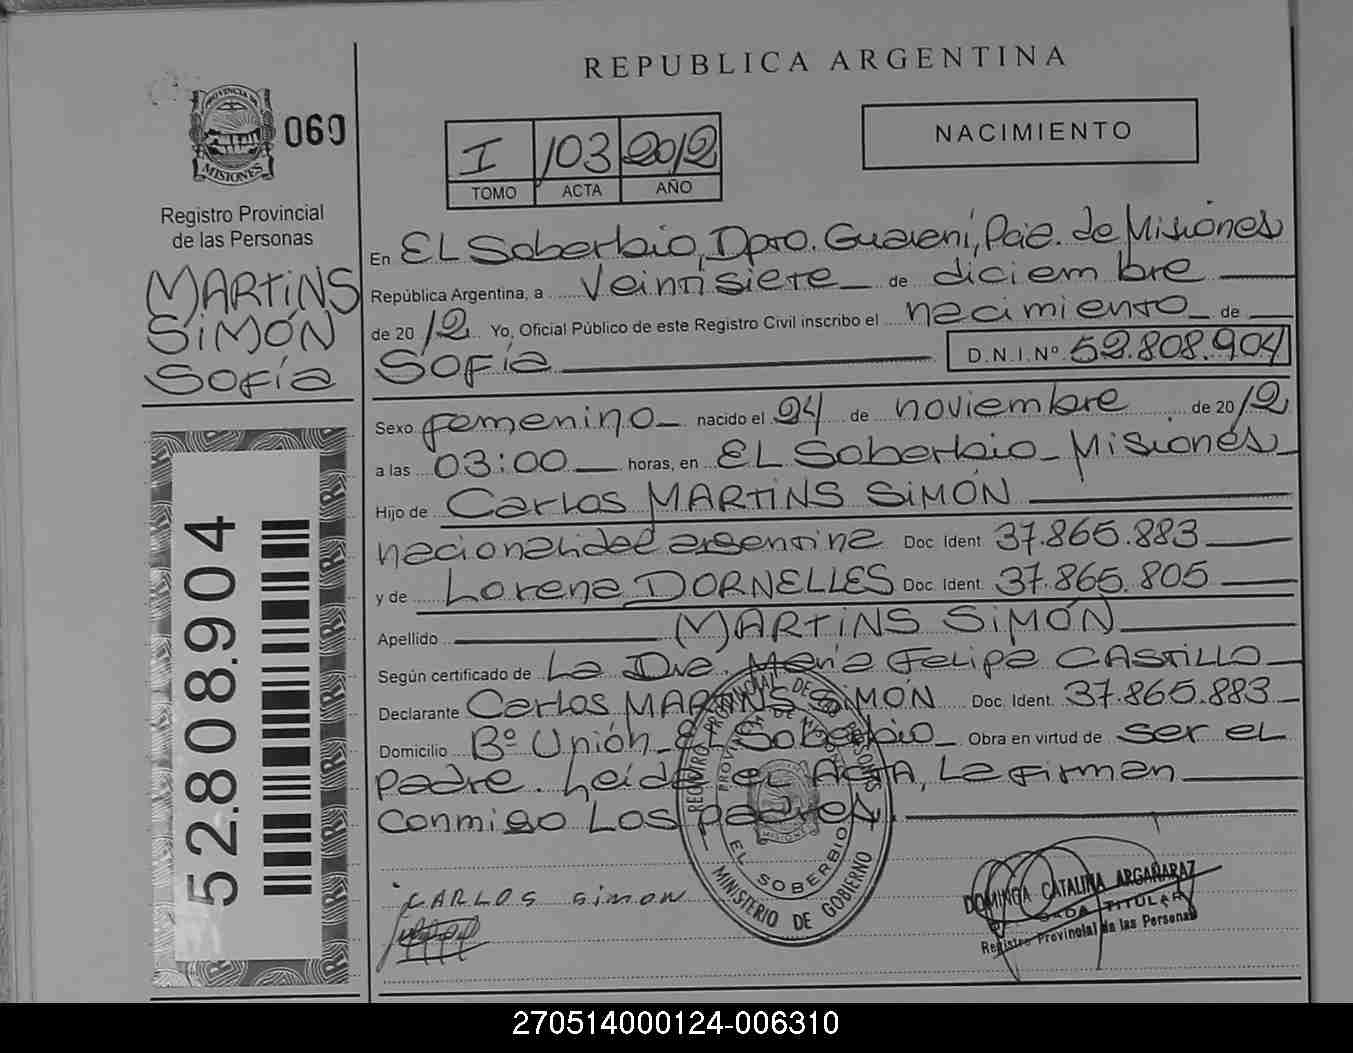 REPUBLICA ARGENTINA
PROVINCIA DE
MISIONES
060
Registro Provincial
de las Personas
MARTiNS
SiMÓN
Sofía
I /03 2012
TOMO ACTA AÑO
NACIMIENTO
En EL Soberbio, Dpto. Guaraní, Pcia. de Misiones
República Argentina, a Veintisiete de diciembre
de 2012 Yo, Oficial Público de este Registro Civil inscribo el nacimiento de
Sofía D.N.I. Nº 52.808.904
Sexo femenino nacido el 24 de noviembre de 2012
a las 03:00 horas, en EL Soberbio - Misiones
Hijo de Carlos MARTiNS SiMÓN
nacionalidad argentina Doc Ident. 37.865.883
y de Lorena DORNELLES Doc Ident. 37.865.805
Apellido MARTiNS SiMÓN
Según certificado de La Dra. María Felipa CASTILLO
Declarante Carlos MARTiNS SiMÓN Doc. Ident. 37.865.883
Domicilio Bº Unión - EL Soberbio Obra en virtud de ser el
padre. Leída el ActA, La firman
conmigo Los padres.
52.808.904
REGISTRO PROVINCIAL DE LAS PERSONAS
PROVINCIA DE MISIONES
EL SOBERBIO
MINISTERIO DE GOBIERNO
CARLOS simon
DOMINGA CATALINA ARGAÑARAZ
TITULAR
Registro Provincial de las Personas
270514000124-006310